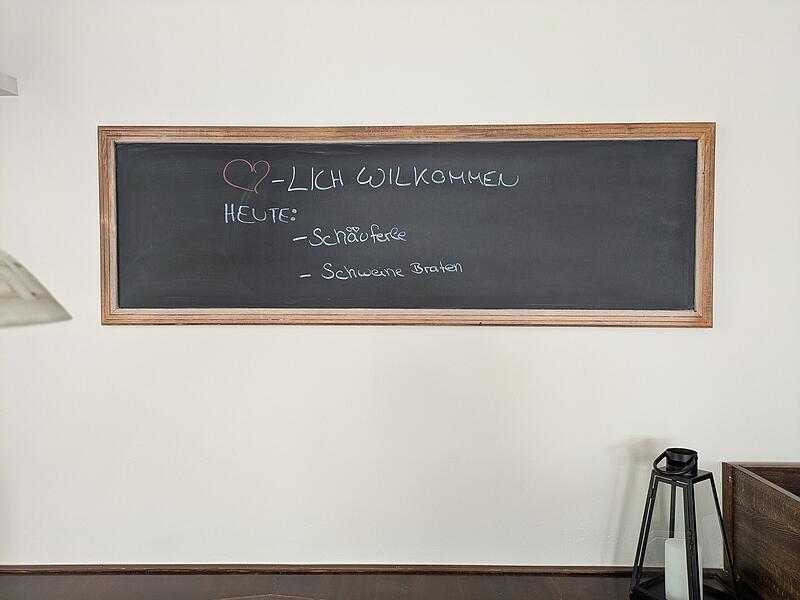 ♡-LICH WILKOMMEN
HEUTE:
- Schäuferle
- Schweine Braten